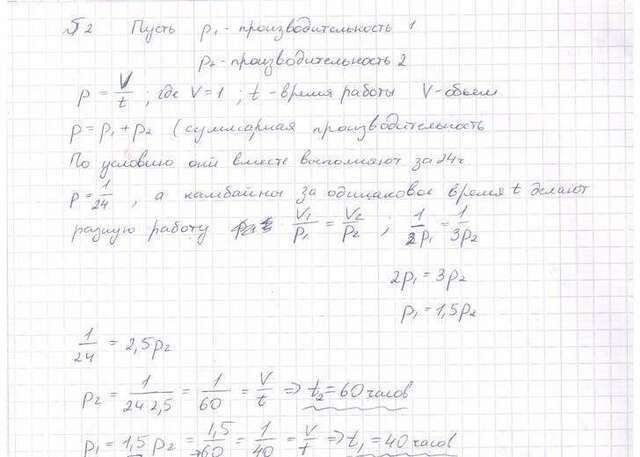 № 2 Пусть p₁ - производительность 1
p₂ - производительность 2
p = V/t ; где V = 1 ; t - время работы V - обьем
p = p₁ + p₂ (суммарная производительность
По условию они вместе выполняют за 24ч
p = 1/24 , а комбайны за одинаковое время t делают
разную работу V₁/p₁ = V₂/p₂ ; 1/2p₁ = 1/3p₂
2p₁ = 3p₂
p₁ = 1,5p₂
1/24 = 2,5p₂
p₂ = 1/24 2,5 = 1/60 = V/t ⇒ t₂ = 60 часов
p₁ = 1,5 p₂ = 1,5/60 = 1/40 = V/t ⇒ t₁ = 40 часов